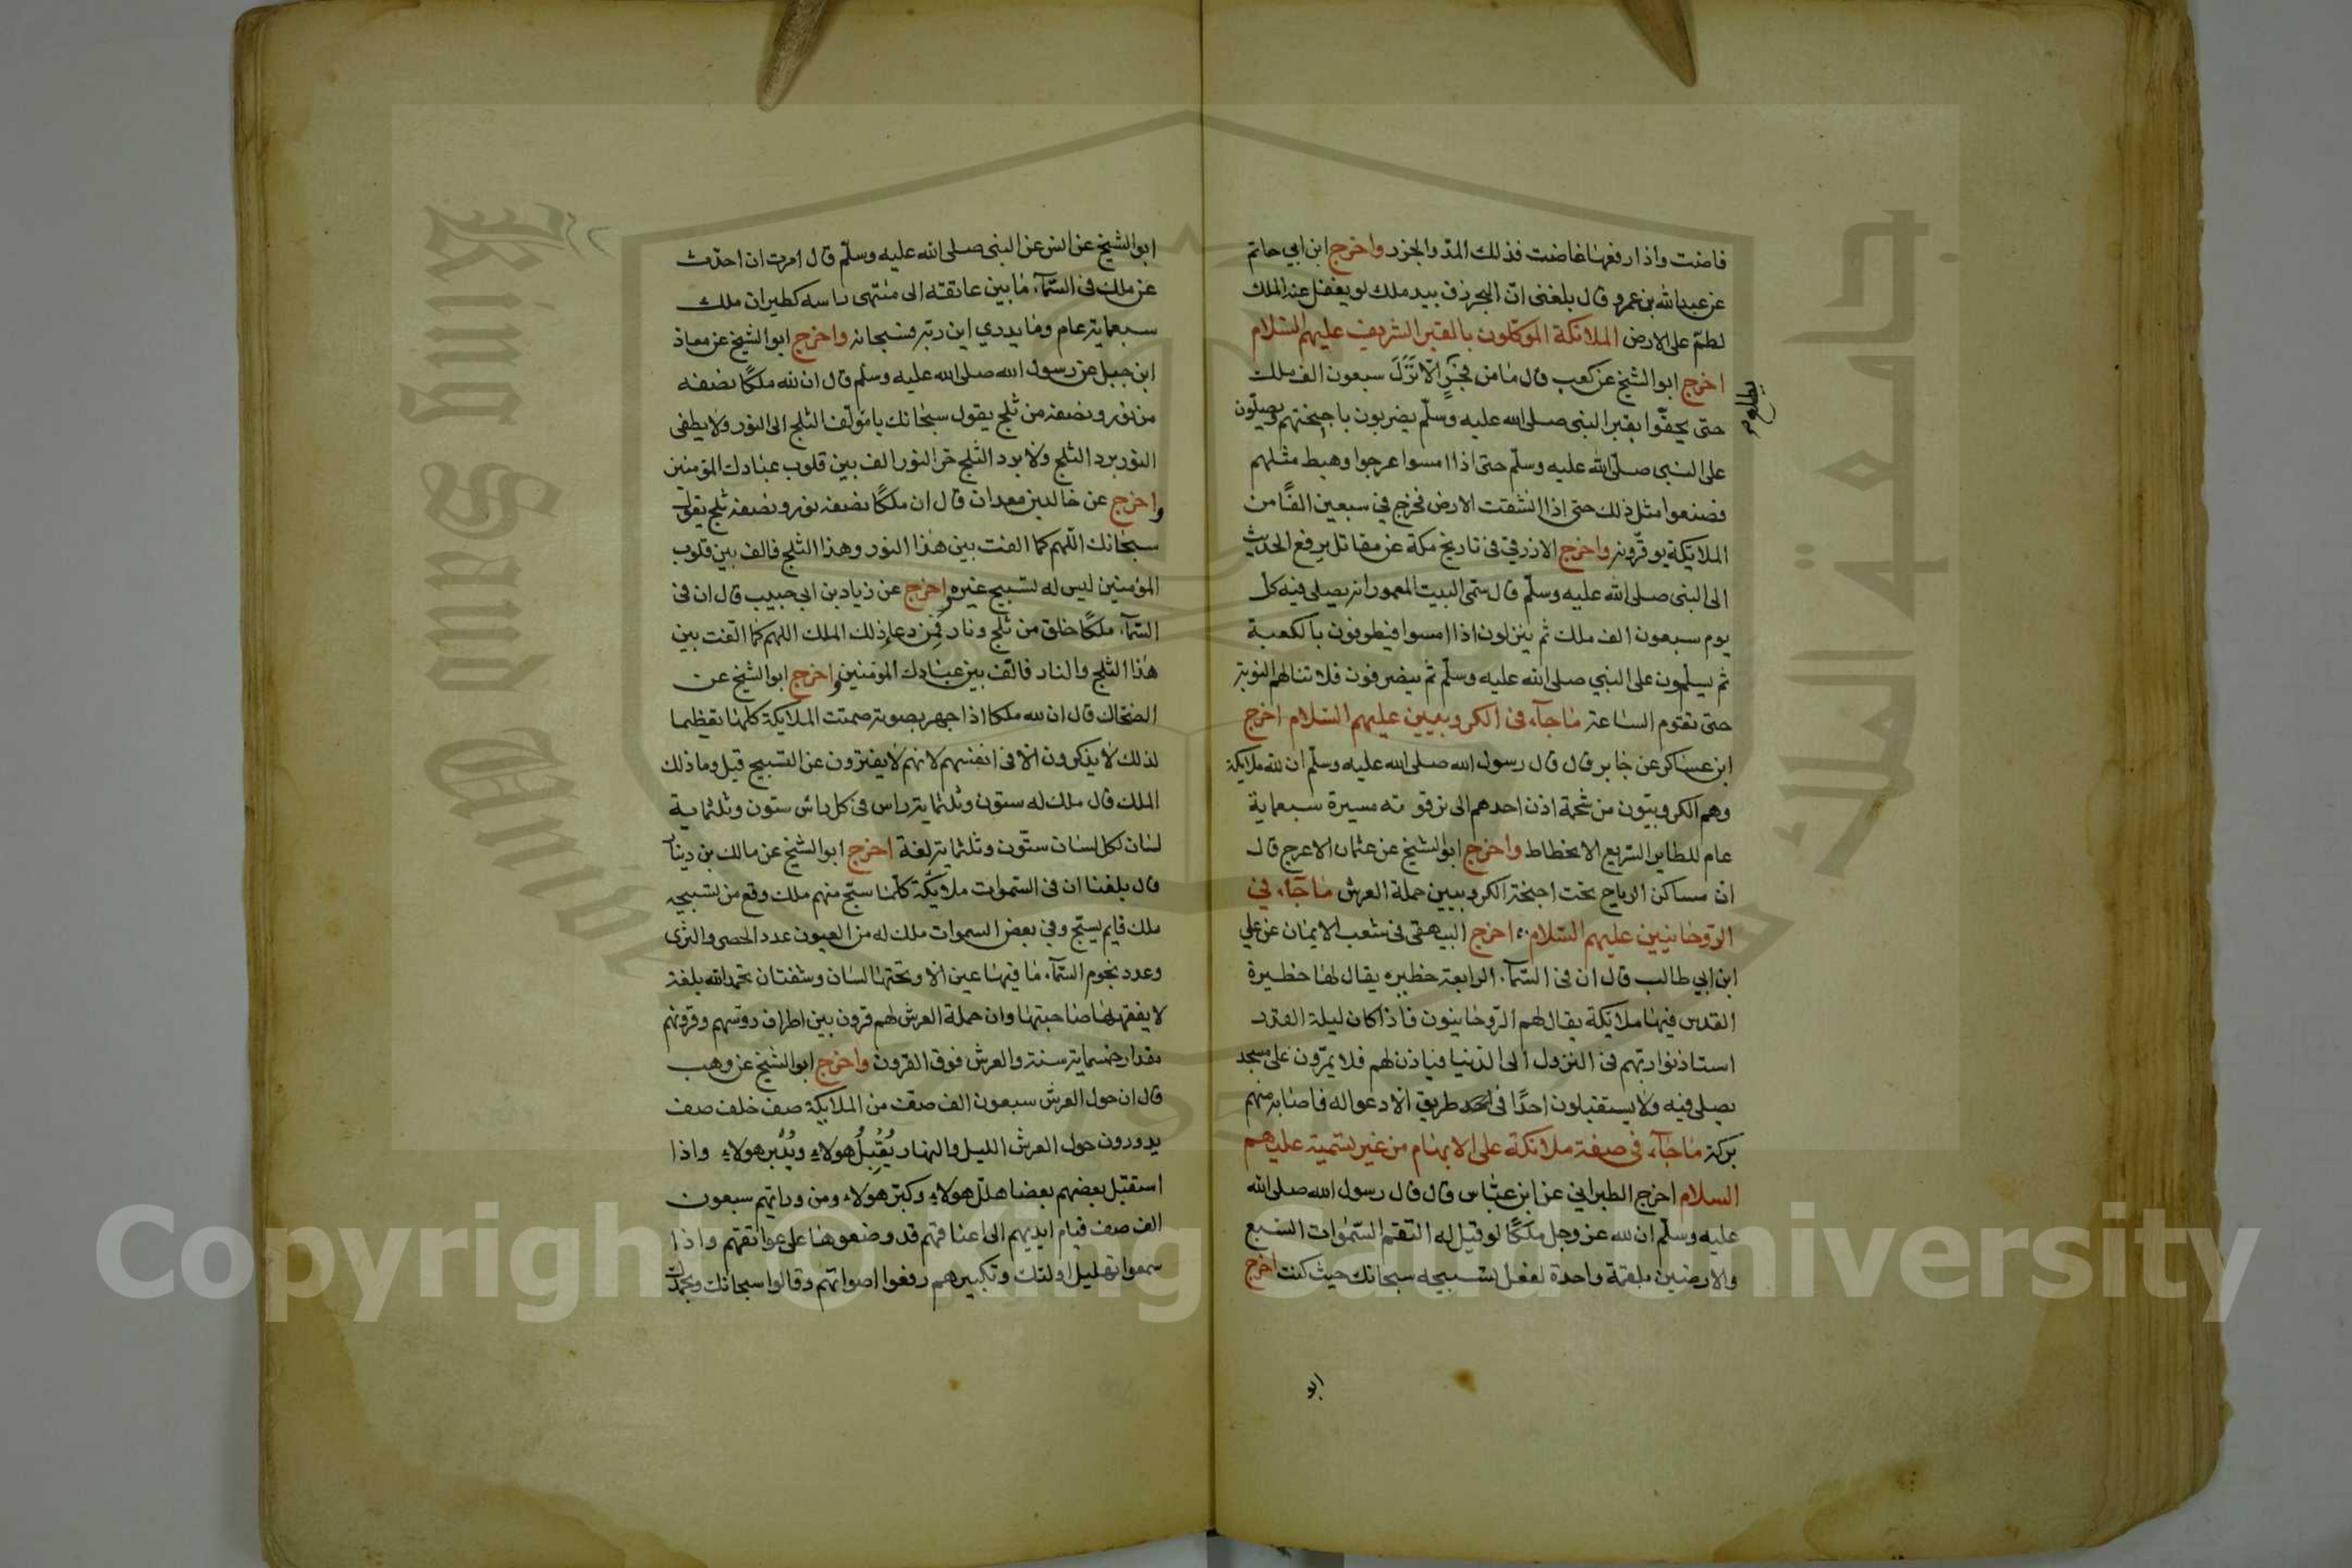 فاضت واذا رفعها غاضت فذلك المدّ والجزر واخرج ابن ابي حاتم
عن عبد الله بن عمرو قال بلغنى انّ البحر زق بيد ملك لو يغفل عنه الملك
لطمّ على الارض الملائكة الموكلون بالقبر الشريف عليهم السّلام
اخرج ابو الشيخ عن كعب قال ما من فجرٍ الّا نزل سبعون الف ملك
يطلع
حتى يحفّوا بقبر النبى صلى الله عليه وسلّم يضربون باجنحتهم ويصلّون
على النبى صلّى الله عليه وسلّم حتى اذا امسوا عرجوا وهبط مثلهم
فصنعوا مثل ذلك حتى اذا انشقت الارض خرج في سبعين الفًا من
الملائكة يوقّرونه واخرج الازرقي فى تاريخ مكة عن مقاتل يرفع الحديث
الى النبى صلى الله عليه وسلّم قال سمّى البيت المعمور انه يصلى فيه كل
يوم سبعون الف ملك ثم ينزلون اذا امسوا فيطوفون بالكعبة
ثم يسلّمون على النبي صلى الله عليه وسلّم ثم ينصرفون فلا تنالهم النوبة
حتى تقوم الساعة ماجآء فى الكروبيين عليهم السّلام اخرج
ابن عساكر عن جابر قال قال رسول الله صلى الله عليه وسلّم ان لله ملائكة
وهم الكروبيّون من شحمة اذن احدهم الى ترقوته مسيرة سبعماية
عام للطاير السّريع الانحطاط واخرج ابو الشيخ عن عثمان الاعرج قال
انّ مساكن الرياح تحت اجنحة الكروبيين حملة العرش ماجآء في
الرّوحانيين عليهم السّلام اخرج البيهقى فى شعب الايمان عن علي
ابن ابي طالب قال ان فى السّمآء الرابعة حظيره يقال لها حظيرة
القدس فيها ملائكة يقال لهم الرّوحانيون فاذا كان ليلة القدر
استاذنوا ربّهم فى النزول الى الدنيا فياذن لهم فلا يمرّون على مسجد
يصلى فيه ولا يستقبلون احدًا فى طريق الا دعوا له فاصابه منهم
بركة ماجآء فى صفة ملائكة على الابهام من غير تسمية عليهم
السلام اخرج الطبراني عن ابن عبّاس قال قال رسول الله صلى الله
عليه وسلّم ان لله عز وجل ملكًا لو قيل له التقم السّموات السّبع
والارضين بلقمة واحدة لفعل تسبيحه سبحانك حيث كنت اخرج
ابو
ابو الشيخ عن انس عن النبى صلى الله عليه وسلّم قال امرت ان احدّث
عن ملك فى السّمآء ما بين عاتقه الى منتهى راسه كطيران ملك
سبعماية عام وما يدري اين ربّه فسبحانه واخرج ابو الشيخ عن معاذ
ابن جبل عن رسول الله صلى الله عليه وسلم قال ان لله ملكًا نصفه
من نور ونصفه من ثلج يقول سبحانك يا مؤلّف الثلج الى النور ولا يطفى
النور برد الثلج ولا برد الثلج حر النور الف بين قلوب عبادك المؤمنين
واخرج عن خالد بن معدان قال ان ملكًا نصفه نور ونصفه ثلج يقول
سبحانك اللّهم كما الفت بين هذا النور وهذا الثلج فالف بين قلوب
المؤمنين ليس له تسبيح غيره واخرج عن زياد بن ابي حبيب قال ان فى
السّمآء ملكًا خلق من ثلج ونار فمن دعاء ذلك الملك اللهم كما الّفت بين
هذا الثلج والنار فالّف بين عبادك المؤمنين واخرج ابو الشيخ عن
الضحّاك قال ان لله ملكا اذا جهر بصوته صمتت الملايكة كلها تعظيما
لذلك لا يذكرون الا فى انفسهم لانهم لا يفترون عن التسبيح قيل وما ذلك
الملك قال ملك له ستون وثلثماية راس فى كل راس ستون وثلثماية
لسان لكل لسان ستّون وثلثماية لغة اخرج ابو الشيخ عن مالك بن دينار
قال بلغنا ان فى السّموات ملايكة كلّما سبّح منهم ملك وقع من تسبيحه
ملك قايم يسبّح وفي بعض السموات ملك له من العيون عدد الحصى والثرى
وعدد نجوم السّمآء ما فيها عين الا وتحتها لسان وشفتان تحمد الله بلغة
لا يفقهها صاحبتها وان حملة العرش لهم قرون بين اطراف روسهم وقرونهم
مقدار خمسماية سنة والعرش فوق القرون واخرج ابو الشيخ عن وهب
قال ان حول العرش سبعون الف صف من الملايكة صف خلف صف
يدورون حول العرش الليل والنهار يُقبِلُ هولاءِ ويُدْبر هولاءِ واذا
استقبل بعضهم بعضا هلّل هولاءِ وكبّر هولاء ومن ورايهم سبعون
الف صف قيام ايديهم الى اعناقهم قد وضعوها على عواتقهم واذا
سمعوا تهليل اولئك وتكبيرهم رفعوا اصواتهم وقالوا سبحانك وبحمدك
King Saud University
جامعة الملك
Copyright © King Saud University